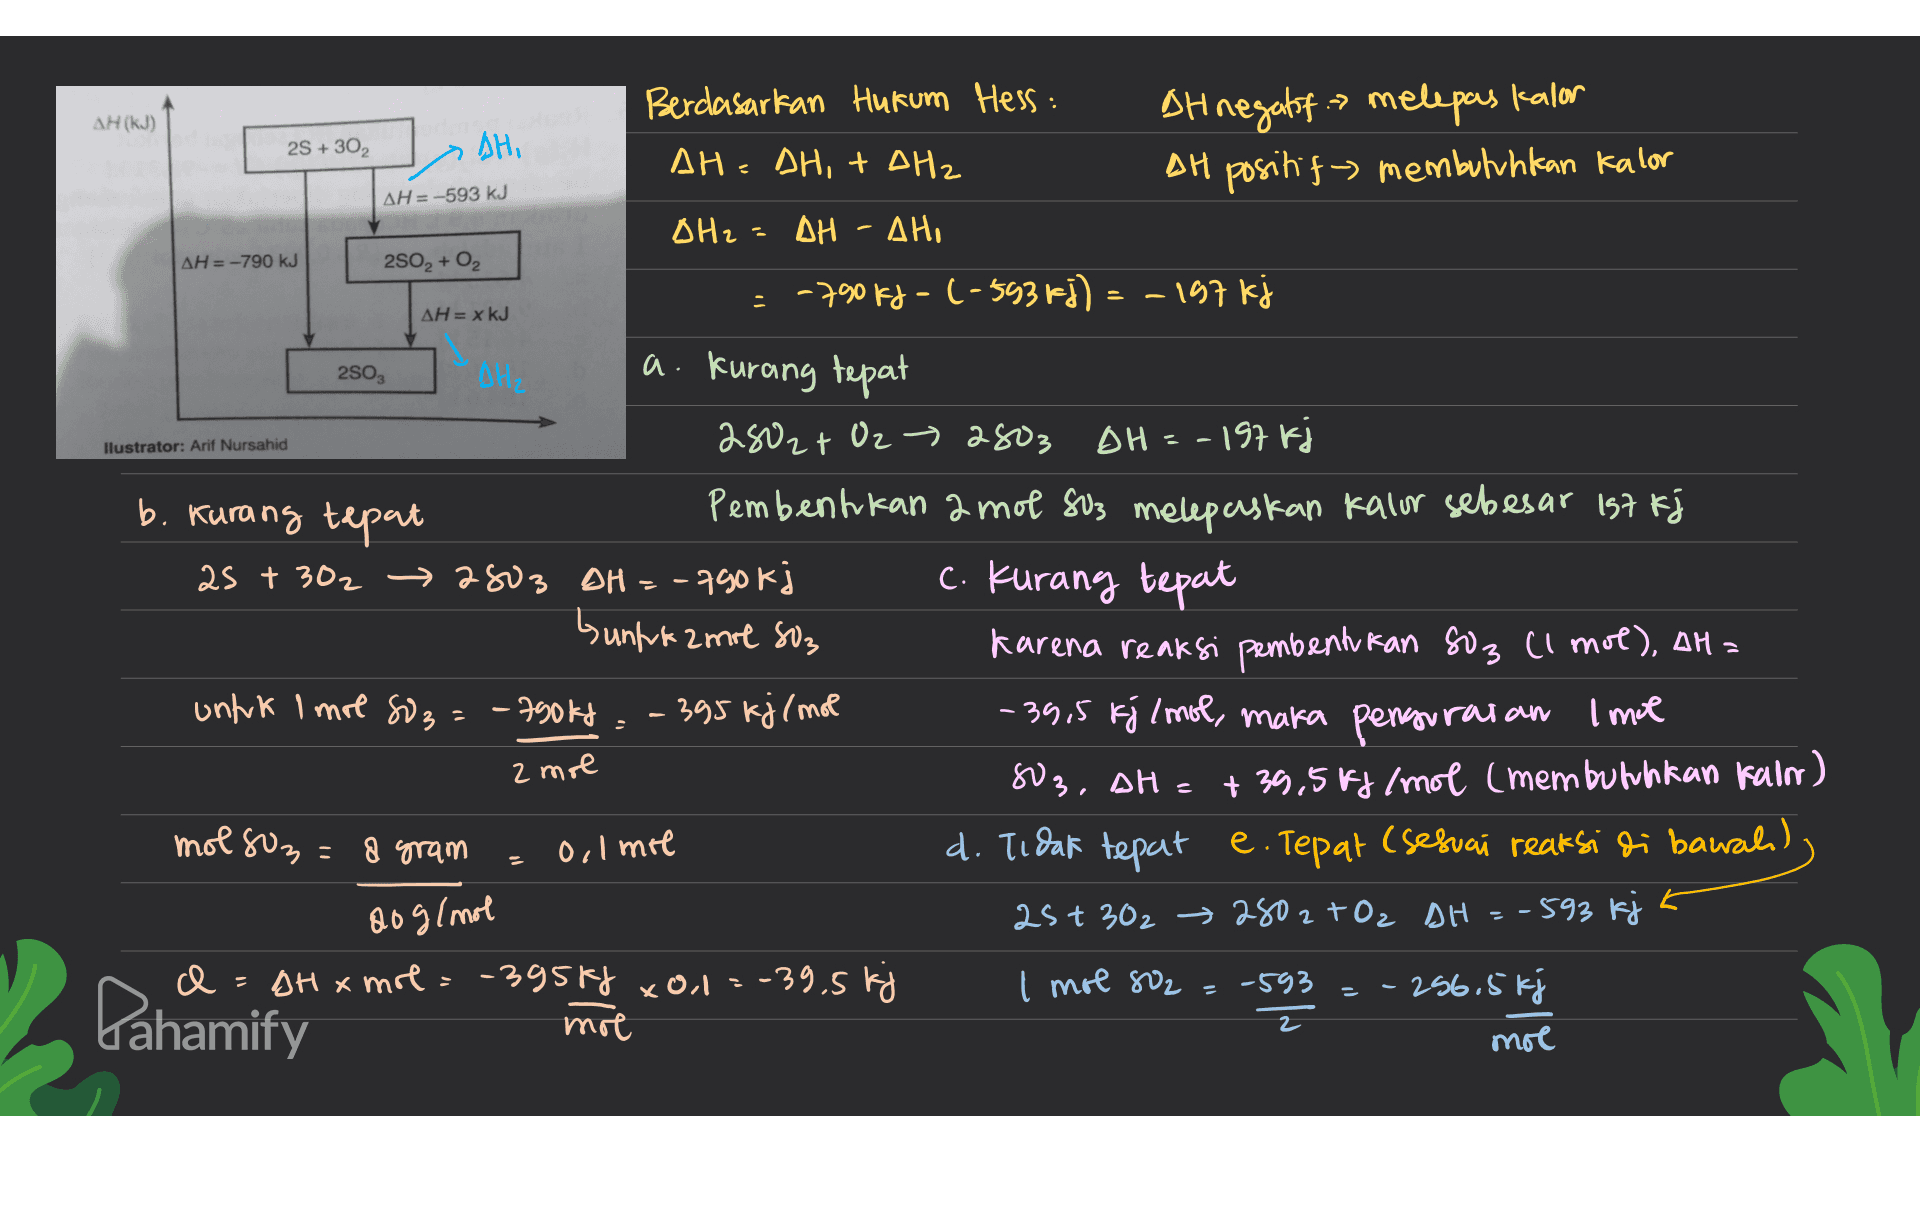 ΔH (kJ)
2S + 3O₂
ΔH₁
ΔH = –593 kJ
ΔH = –790 kJ
2SO₂ + O₂
ΔH = x kJ
2SO₃
ΔH₂
Ilustrator: Arif Nursahid
Berdasarkan Hukum Hess :
ΔH = ΔH₁ + ΔH₂
ΔH₂ = ΔH - ΔH₁
= -790 kj - (-593 kj) = -197 kj
ΔH negatif → melepas kalor
ΔH positif → membutuhkan kalor
a. kurang tepat
2SO₂ + O₂ → 2SO₃ ΔH = -197 kj
Pembentukan 2 mol SO₃ melepaskan kalor sebesar 197 kj
b. kurang tepat
2S + 3O₂ → 2SO₃ ΔH = -790 kj
↳ untuk 2 mol SO₃
untuk 1 mol SO₃ = -790 kj = -395 kj/mol
2 mol
mol SO₃ = 8 gram = 0,1 mol
80 g/mol
Q = ΔH x mol = -395 kj x 0,1 = -39,5 kj
mol
c. kurang tepat
karena reaksi pembentukan SO₃ (1 mol), ΔH =
-39,5 kj/mol, maka penguraian 1 mol
SO₃, ΔH = +39,5 kj/mol (membutuhkan kalor)
d. Tidak tepat e. Tepat (sesuai reaksi di bawah)
2S + 3O₂ → 2SO₂ + O₂ ΔH = -593 kj
1 mol SO₂ = -593 = -296,5 kj
2 mol
Pahamify